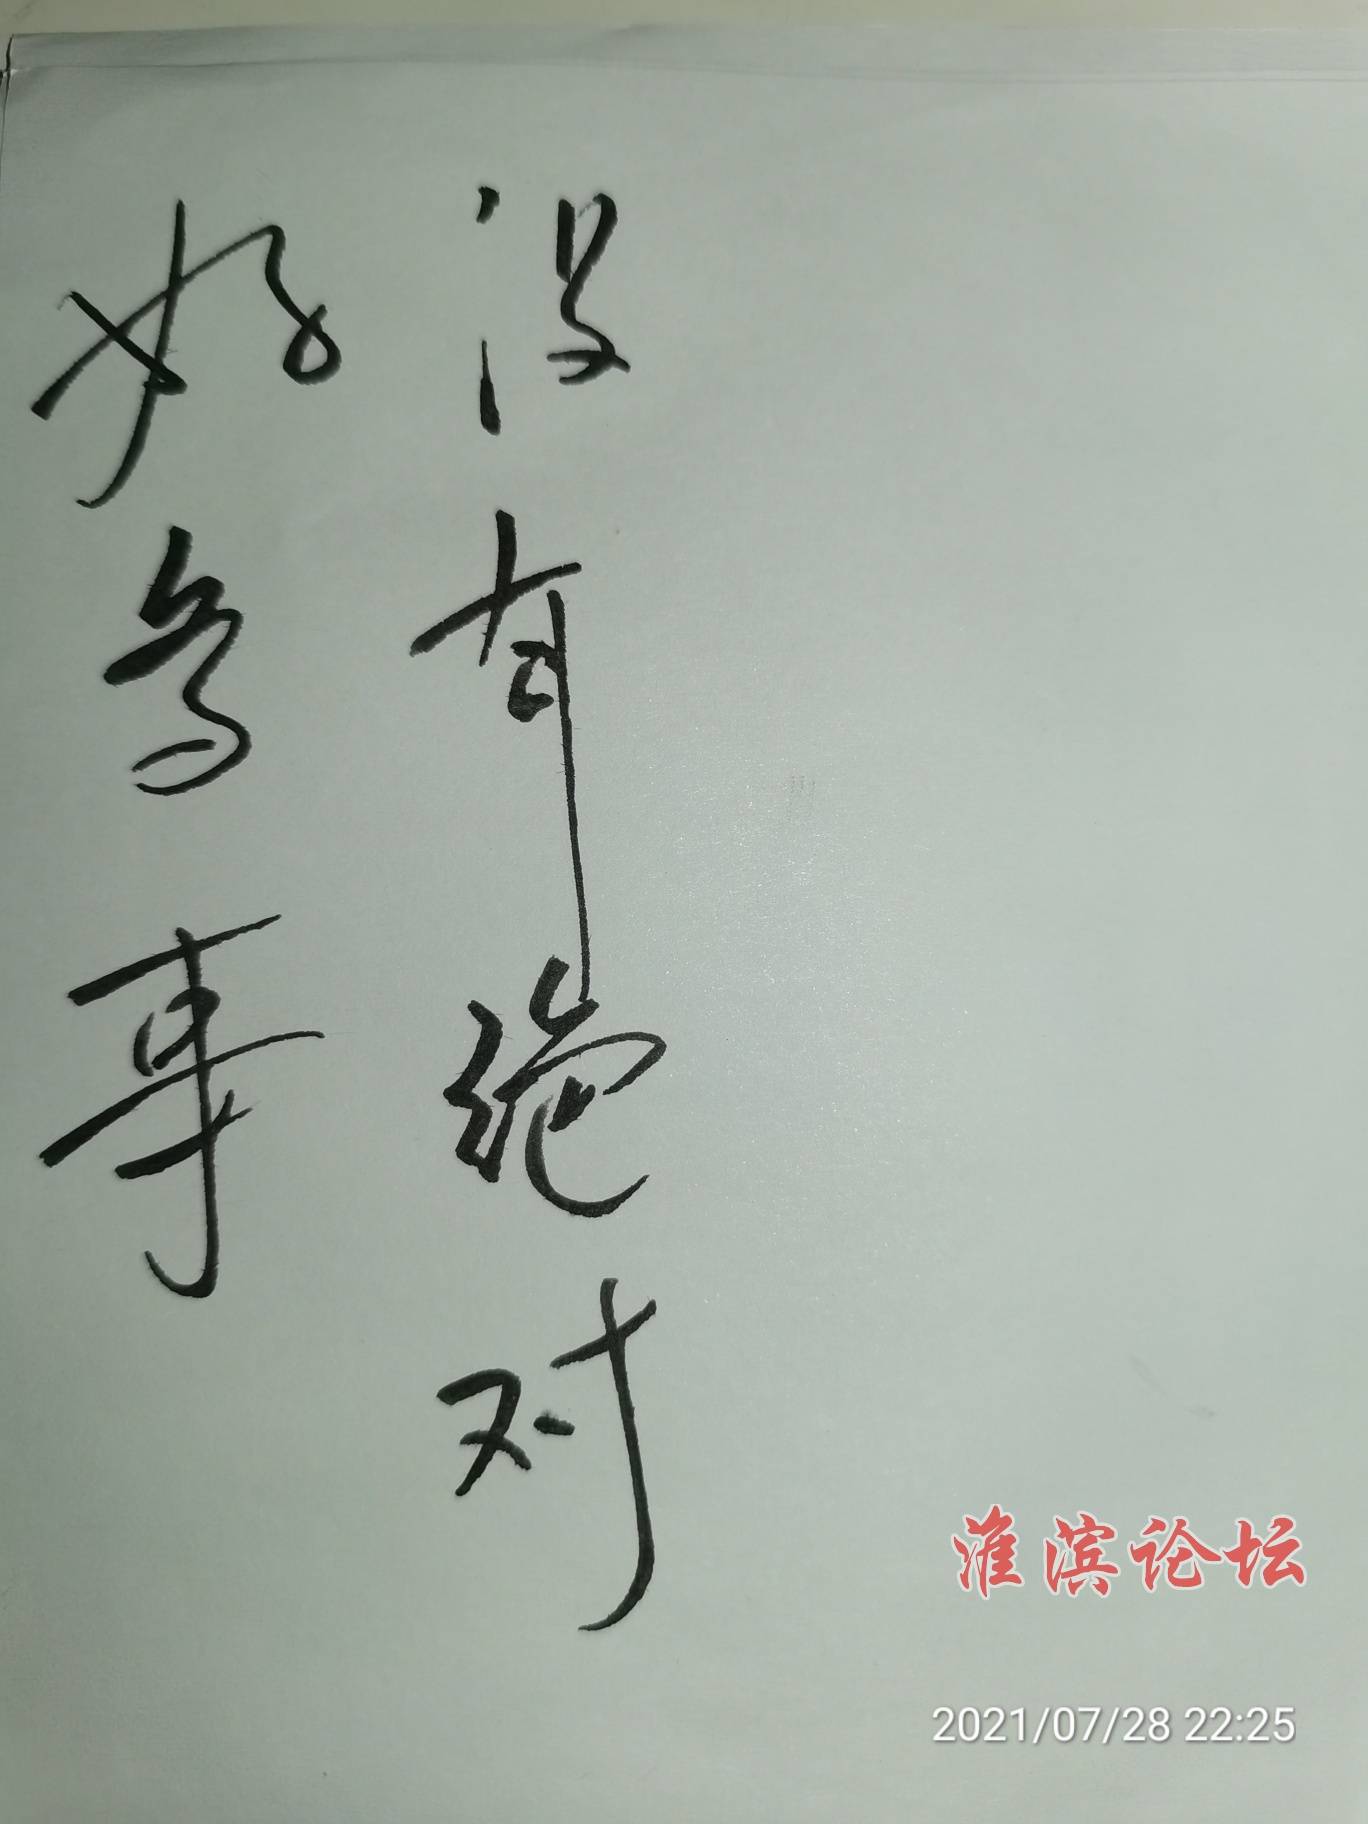 好多事
没有绝对
淮滨论坛
2021/07/28 22:25